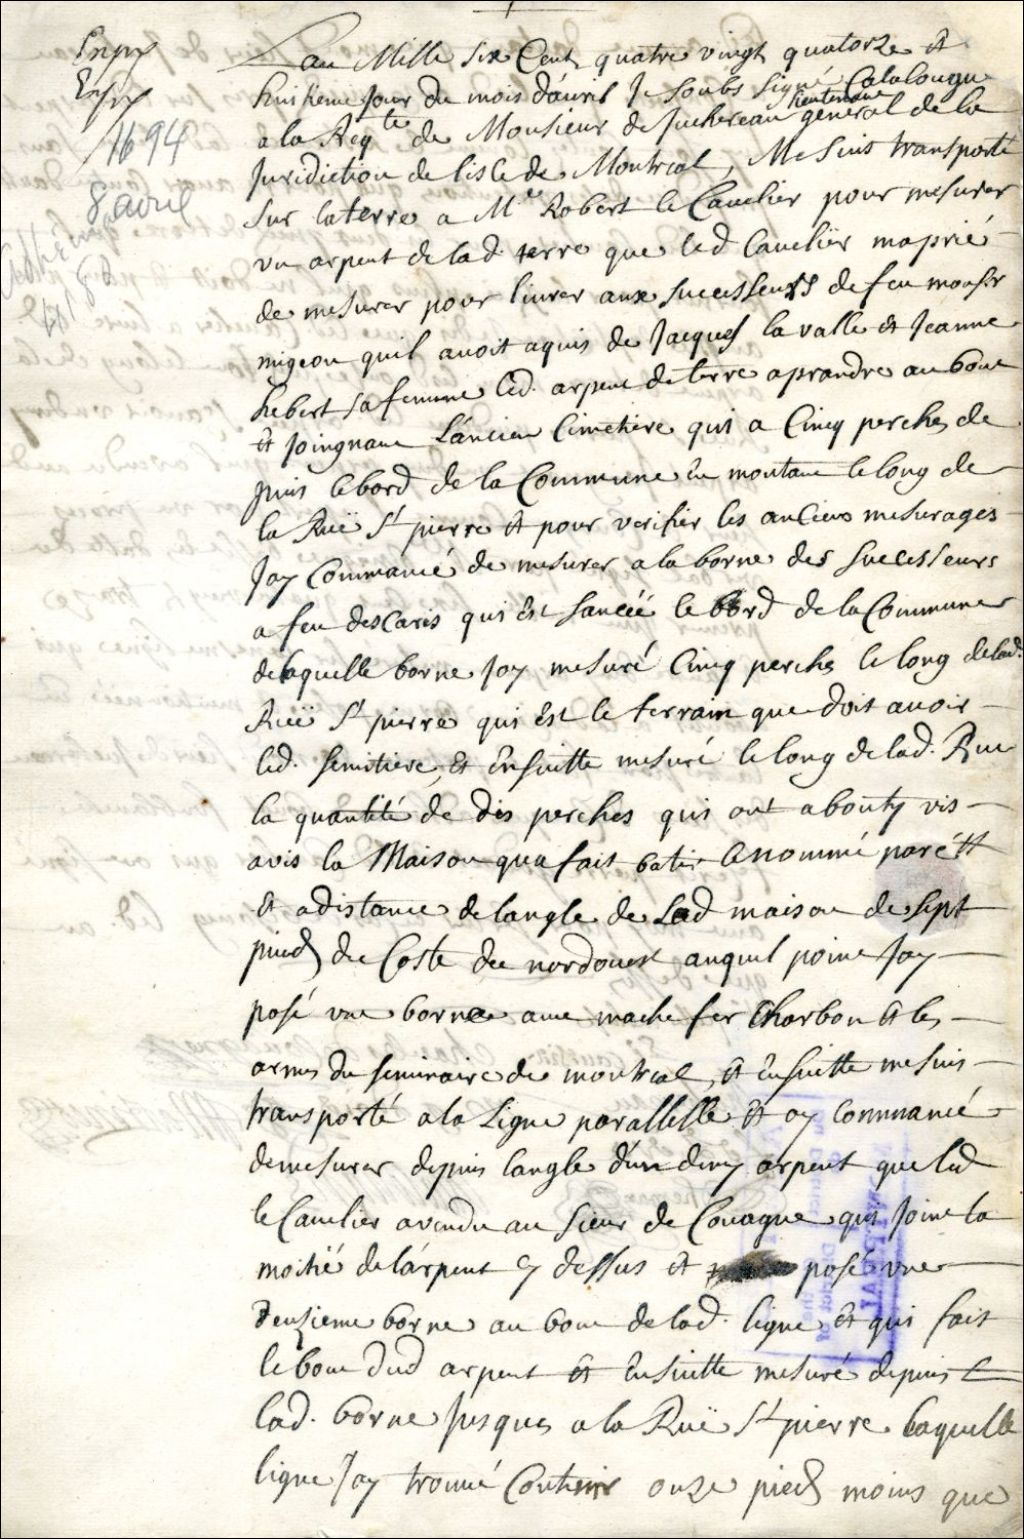 Expx
Expx
1694
8 avril
Lan Mille Six Cent quatre vingt quatorze et
huitieme Jour du mois dávril Je Soubs Signé Catalougne
a la Reqte de Monsieur de Juchereau lieutenant general de la
Juridiction de lisle de Montreal, Me Suis transporté
Sur la terre a Mr Robert le Cauelier pour mesurer
vn arpent de lad. terre que led Cauelier maprié
de mesurer pour liurer aux Successeurs de feu monsr
migeon quil auoit aquis de Jacques la valle et Jeanne
hebert sa femme led. arpent de terre aprandre au bout
et Joingnant Láncien Cimetiere qui a Cinq perches de
puis le bord de la Commune En montant le long de
la Ruë St pierre et pour verifier les anciens mesurages
Jay Commancé de mesurer a la borne des Successeurs
a feu descaris qui est Sancéé le bord de la Commune
de laquelle borne Jay mesuré Cinq perches le long delad.
Ruë St pierre qui est le terrain que doit auoir
led. Semitiere, et Ensuitte mesuré le long delad. Rue
la quantité de dis perches qui ont abouty vis
avis la Maison qua fait batir le nommé paréit
et adistance de langle de Lad maison de Sept
pieds du Coste du nordouest auquel point Jay
posé vne borne auec mache fer Charbon et les
armes du Seminaire de montreal, et Ensuitte me suis
transporté a la Ligne parallelle et ay Commancé
de mesurer depuis langle dún demy arpent que led
le Cauelier a vendu au Sieur de Couagne qui Joint la
moitié de lárpent cy dessus et posé vne
deuzieme borne au bout delad. ligne et qui fait
le bout dud arpent et Ensuitte mesuré depuis
Lad. borne Jusques a la Ruë St pierre Laquelle
ligne Jay trouué Contenir onze pieds moins que